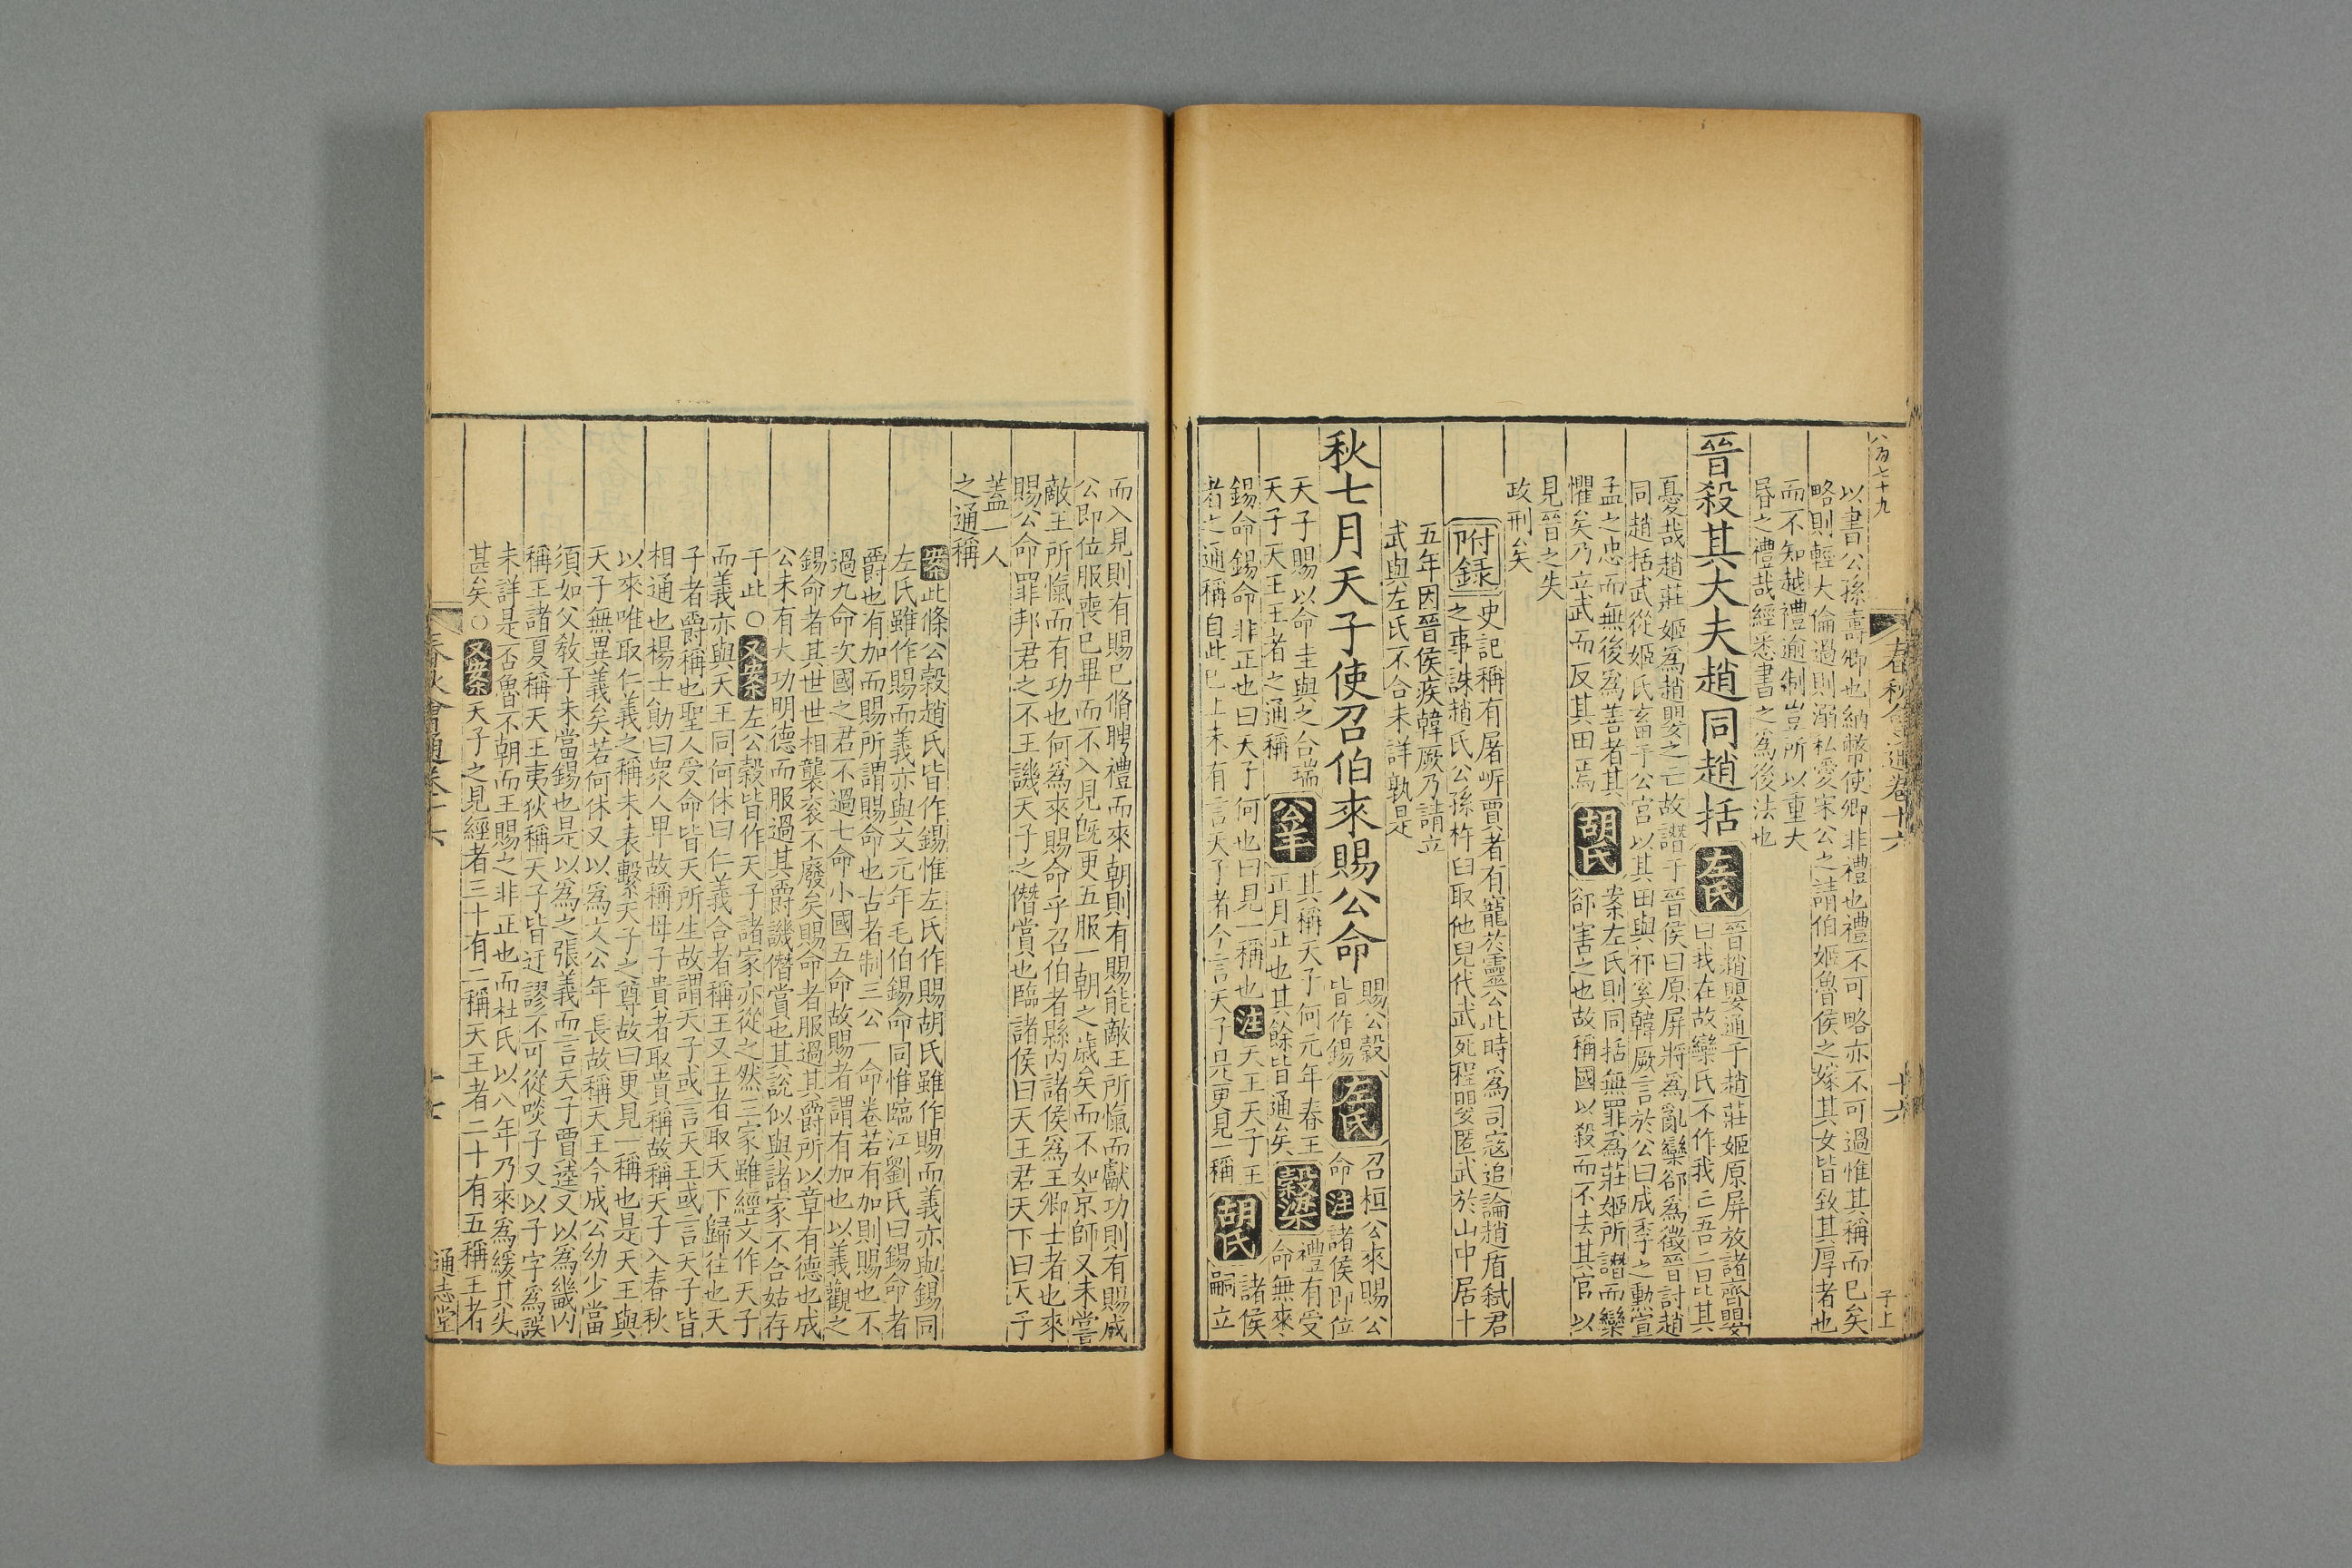 八百七十九
春秋會通卷十六
十六
子上
以書公孫壽卿也納幣使卿非禮也禮不可略亦不可過惟其稱而已矣
略則輕大倫過則溺私愛宋公之請伯姬魯侯之嫁其女皆致其厚者也
而不知越禮逾制豈所以重大
昏之禮哉經悉書之爲後法也
晉殺其大夫趙同趙括
左氏
晉趙嬰通于趙莊姬原屏放諸齊嬰
曰我在故欒氏不作我亡吾二昆其
憂哉趙莊姬爲趙嬰之亡故譖于晉侯曰原屏將爲亂欒郤爲徵晉討趙
同趙括武從姬氏畜于公宮以其田與祁奚韓厥言於公曰成季之勳宣
孟之忠而無後爲善者其
懼矣乃立武而反其田焉
胡氏
案左氏則同括無罪爲莊姬所譖而欒
郤害之也故稱國以殺而不去其官以
見晉之失
政刑矣
附錄
史記稱有屠岸賈者有寵於靈公此時爲司寇追論趙盾弒君
之事誅趙氏公孫杵臼取他兒代武死程嬰匿武於山中居十
五年因晉侯疾韓厥乃請立
武與左氏不合未詳孰是
秋七月天子使召伯來賜公命
賜公穀
皆作錫
左氏
召桓公來賜公
命注諸侯即位
天子賜以命圭與之合瑞
天子天王王者之通稱
公羊
其稱天子何元年春王
正月正也其餘皆通矣
穀梁
禮有受
命無來
錫命錫命非正也曰天子何也曰見一稱也注天王天子王
者之通稱自此已上未有言天子者今言天子是更見一稱
胡氏
諸侯
嗣立
而入見則有賜已脩聘禮而來朝則有賜能敵王所愾而獻功則有賜成
公即位服喪已畢而不入見旣更五服一朝之歲矣而不如京師又未嘗
敵王所愾而有功也何爲來賜命乎召伯者縣內諸侯爲王卿士者也來
賜公命罪邦君之不王譏天子之僭賞也臨諸侯曰天王君天下曰天子
蓋一人
之通稱
案此條公穀趙氏皆作錫惟左氏作賜胡氏雖作賜而義亦與錫同
左氏雖作賜而義亦與文元年毛伯錫命同惟臨江劉氏曰錫命者
爵也有加而賜所謂賜命也古者制三公一命卷若有加則賜也不
過九命次國之君不過七命小國五命故賜者謂有加也以義觀之
錫命者其世世相襲衮不廢矣賜命者服過其爵所以章有德也成
公未有大功明德而服過其爵譏僭賞也其說似與諸家不合姑存
于此〇又案左公穀皆作天子諸家亦從之然三家雖經文作天子
而義亦與天王同何休曰仁義合者稱王又王者取天下歸往也天
子者爵稱也聖人受命皆天所生故謂天子或言天王或言天子皆
相通也楊士勛曰衆人卑故稱母子貴者取貴稱故稱天子入春秋
以來唯取仁義之稱未表繫天子之尊故曰更見一稱也是天王與
天子無異義矣若何休又以爲文公年長故稱天王今成公幼少當
須如父敎子未當錫也是以爲之張義而言天子賈逵又以爲畿內
稱王諸夏稱天王夷狄稱天子皆迂謬不可從啖子又以子字爲誤
未詳是否魯不朝而王賜之非正也而杜氏以八年乃來爲緩其失
甚矣〇又案天子之見經者三十有二稱天王者二十有五稱王者
春秋會通卷十六
通志堂